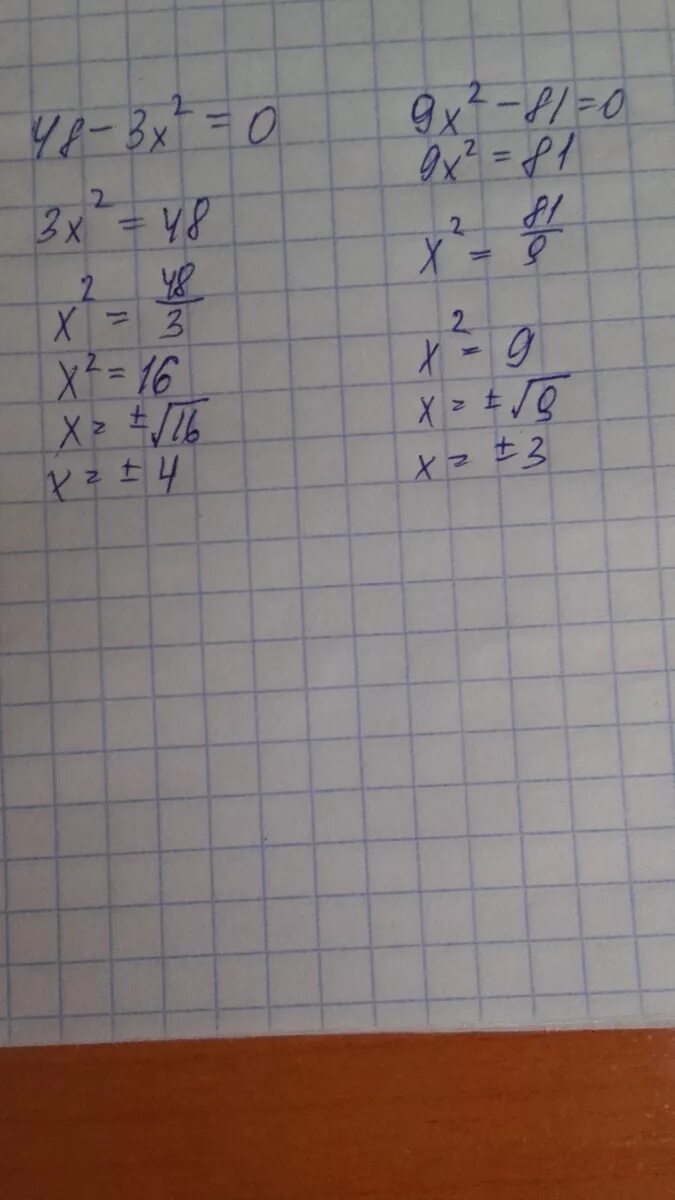 48 - 3x² = 0
3x² = 48
x² = 48/3
x² = 16
x = ±√16
x = ± 4
9x² - 81 = 0
9x² = 81
x² = 81/9
x² = 9
x = ±√9
x = ±3